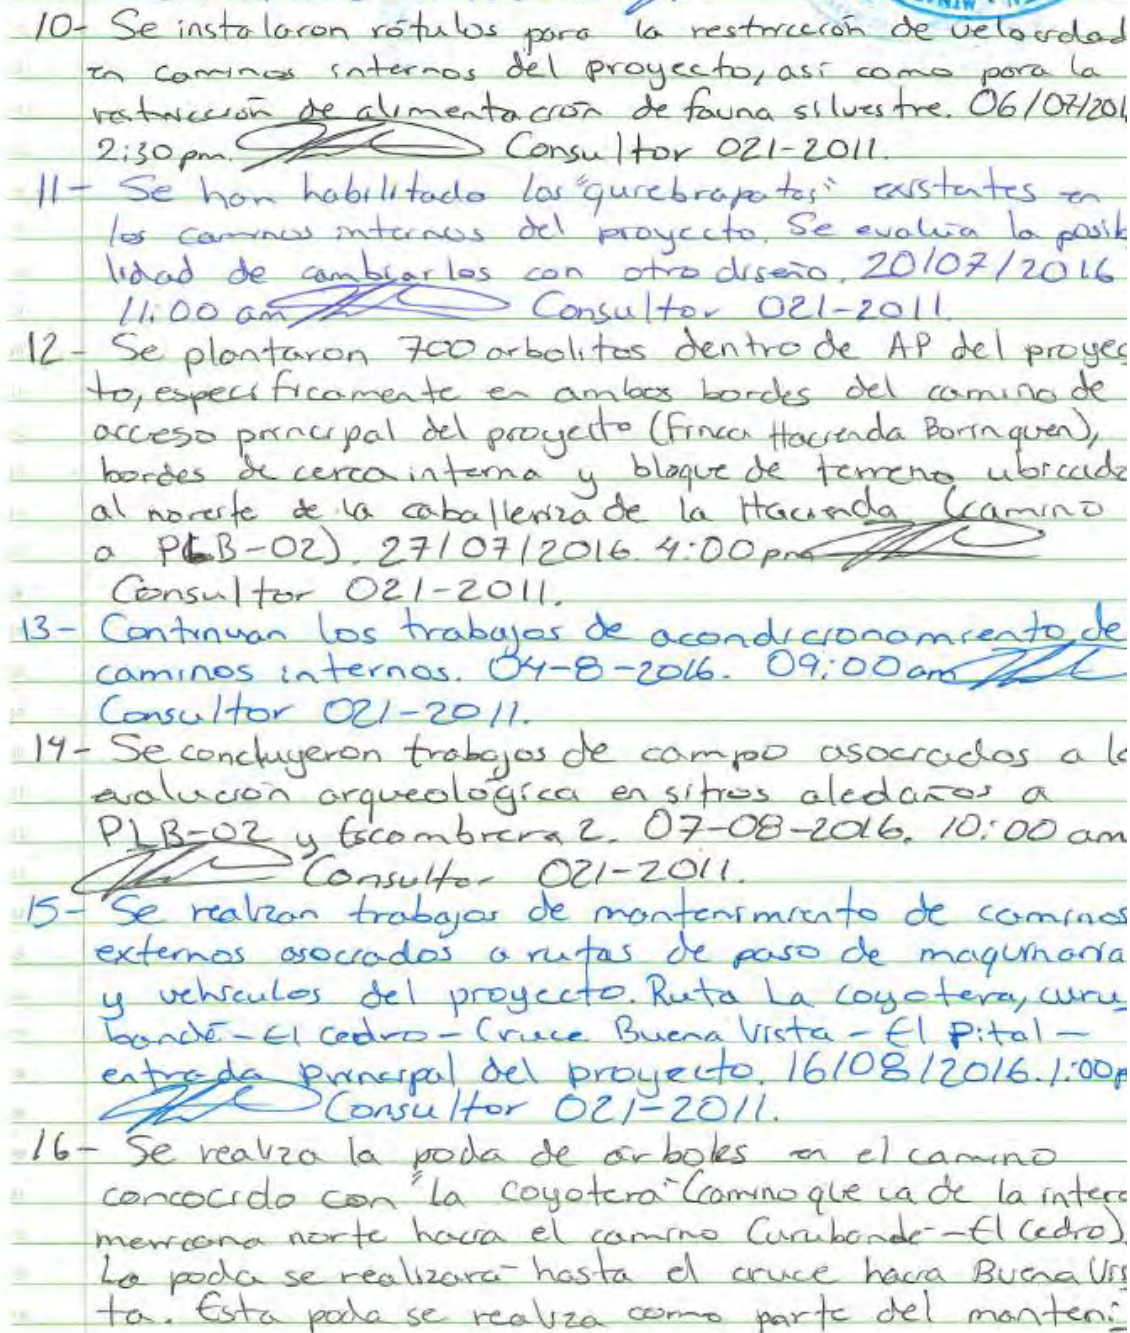 10- Se instalaron rótulos para la restricción de velocidad
en caminos internos del proyecto, así como para la
restricción de alimentación de fauna silvestre. 06/07/201
2:30 pm. Consultor 021-2011.
11- Se han habilitado los "qurebrapatas" existentes en
los caminos internos del proyecto. Se evalúa la posib
lidad de cambiarlos con otro diseño. 20/07/2016
11:00 am Consultor 021-2011.
12- Se plantaron 700 arbolitos dentro de AP del proyec
to, específicamente en ambos bordes del camino de
acceso principal del proyecto (Finca Hacienda Borinquen),
bordes de cerca interna y bloque de terreno ubicado
al noreste de la caballeriza de la Hacienda (camino
a PLB-02). 27/07/2016. 4:00 pm
Consultor 021-2011.
13- Continuan los trabajos de acondicionamiento de
caminos internos. 04-8-2016. 09:00 am
Consultor 021-2011.
14- Se concluyeron trabajos de campo asociados a la
evalución arqueológica en sitios aledaños a
PLB-02 y Escombrera 2. 07-08-2016. 10:00 am
Consultor 021-2011.
15- Se realizan trabajos de mantenimiento de caminos
externos asociados a rutas de paso de maquinaria
y vehículos del proyecto. Ruta La coyotera, curu
bandé - El cedro - Cruce Buena Vista - El Pital -
entrada principal del proyecto. 16/08/2016. 1:00p
Consultor 021-2011.
16- Se realiza la poda de árboles en el camino
concocido con "La Coyotera" (camino que va de la intera
mericana norte hacia el camino Curubandé - El Cedro).
La poda se realizará hasta el cruce hacia Buena Vis
ta. Esta poda se realiza como parte del manteni